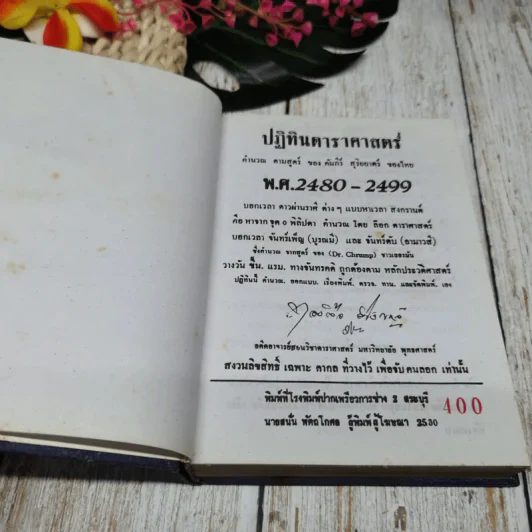 ปฏิทินดาราศาสตร์
คำนวณ ตามสูตร์ ของ คัมภีร์ สุริยยาตร์ ของไทย
พ.ศ.2480 - 2499
บอกเวลา ดาวผ่านราศี ต่าง ๆ แบบหาเวลา สงกรานต์
คือ หาจาก จุด ๐ พิลิปดา คำนวณ โดย ล๊อก ดาราศาสตร์
บอกเวลา จันทร์เพ็ญ (บูรณมี) และ จันทร์ดับ (อามาวสี)
ซึ่งคำนวณ จากสูตร์ ของ (Dr. Chrump) ชาวเยอรมัน
วางวัน ขึ้น. แรม. ทางจันทรคติ ถูกต้องตาม หลักประวัติศาสตร์
ปฏิทินนี้ คำนวณ. ออกแบบ. เรียงพิมพ์. ตรวจ. ทาน. และจัดพิมพ์. เอง
อดีตอาจารย์สอนวิชาดาราศาสตร์ มหาวิทยาลัย พุทธศาสตร์
สงวนลิขสิทธิ์ เฉพาะ ดากล ที่วางไว้ เพื่อจับ คนลอก เท่านั้น
พิมพ์ที่โรงพิมพ์ปากเพรียวการช่าง 2 สระบุรี 400
นายสนั่น หัตถโกศล ผู้พิมพ์ผู้โฆษณา 2530